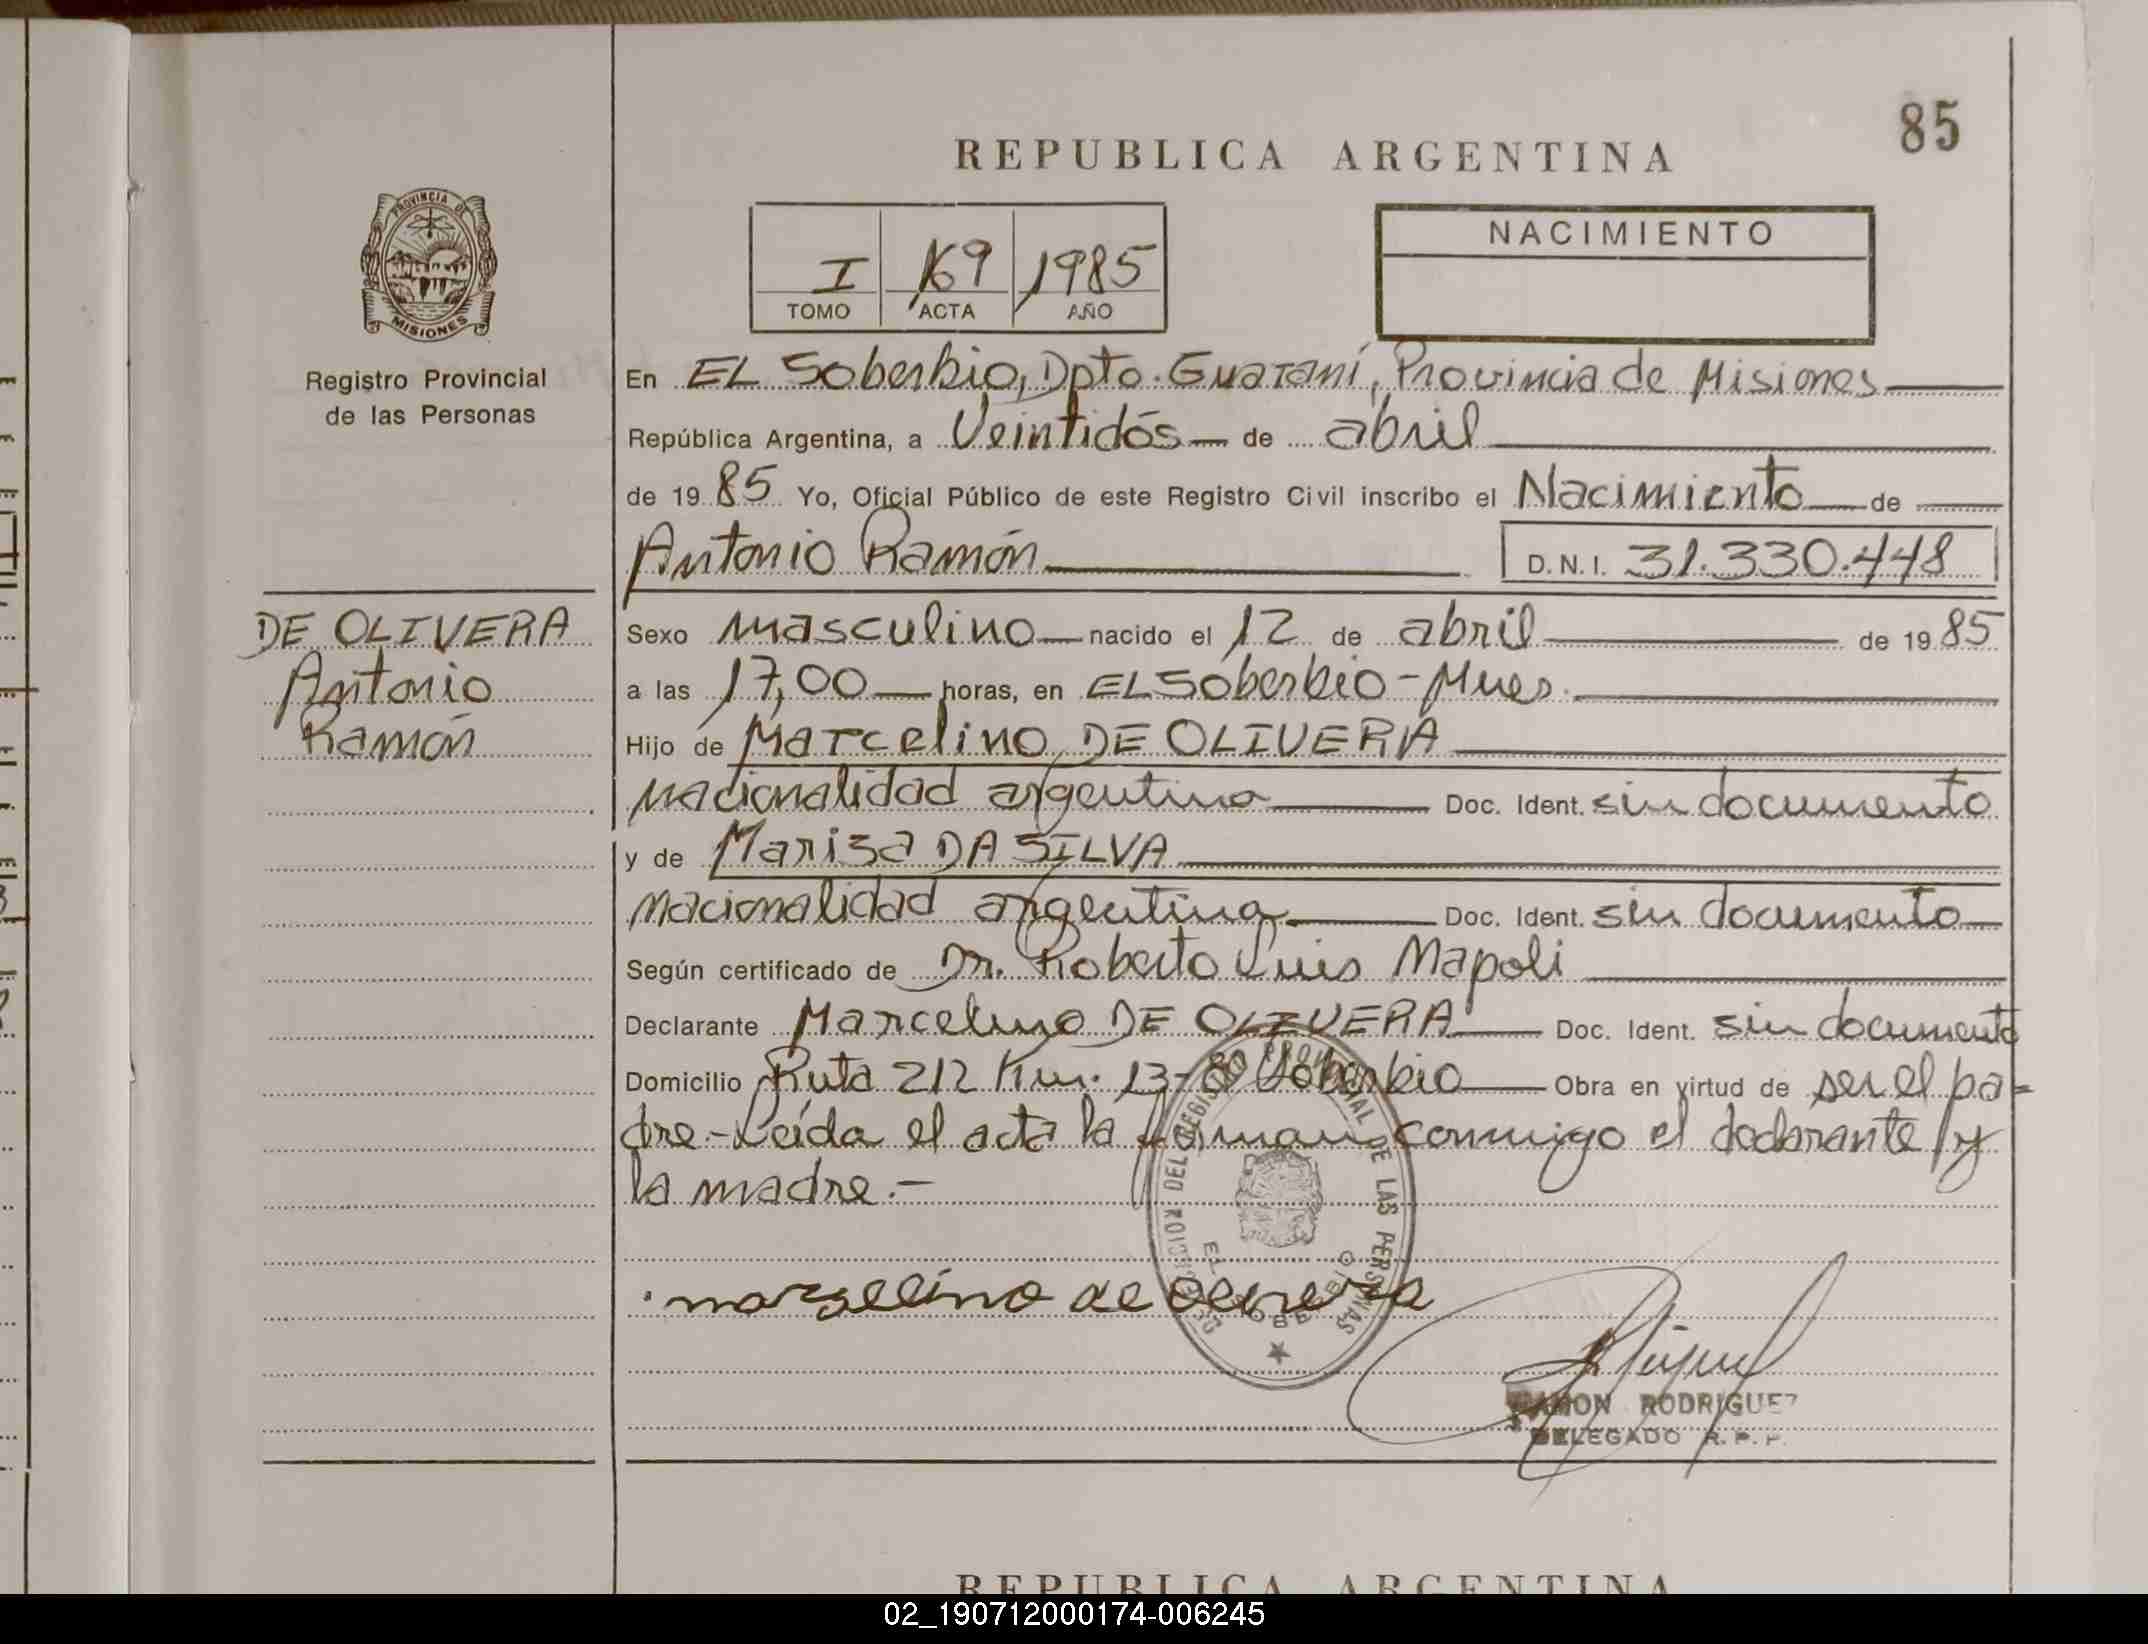 85
REPUBLICA ARGENTINA
PROVINCIA DE
MISIONES
Registro Provincial
de las Personas
I 169 1985
TOMO ACTA AÑO
NACIMIENTO
En EL Soberbio, Dpto. Guaraní, Provincia de Misiones
República Argentina, a Veintidós de abril
de 1985 Yo, Oficial Público de este Registro Civil inscribo el Nacimiento de
Antonio Ramón D.N.I. 31.330.448
DE OLIVERA
Antonio
Ramón
Sexo masculino nacido el 12 de abril de 1985
a las 17,00 horas, en EL Soberbio - Mnes.
Hijo de Marcelino DE OLIVERA
nacionalidad argentina Doc. Ident. sin documento
y de Mariza DA SILVA
nacionalidad argentina Doc. Ident. sin documento
Según certificado de Dr. Roberto Luis Napoli
Declarante Marcelino DE OLIVERA Doc. Ident. sin documento
Domicilio Ruta 212 Km. 13- El Soberbio Obra en virtud de ser el pa-
dre.- Leída el acta la firman conmigo el declarante y
la madre.-
DEL REGISTRO PROVINCIAL DE LAS PERSONAS
EL SOBERBIO
marselino de olivera
RAMON RODRIGUEZ
DELEGADO R.P.P.
REPUBLICA ARGENTINA
02_190712000174-006245